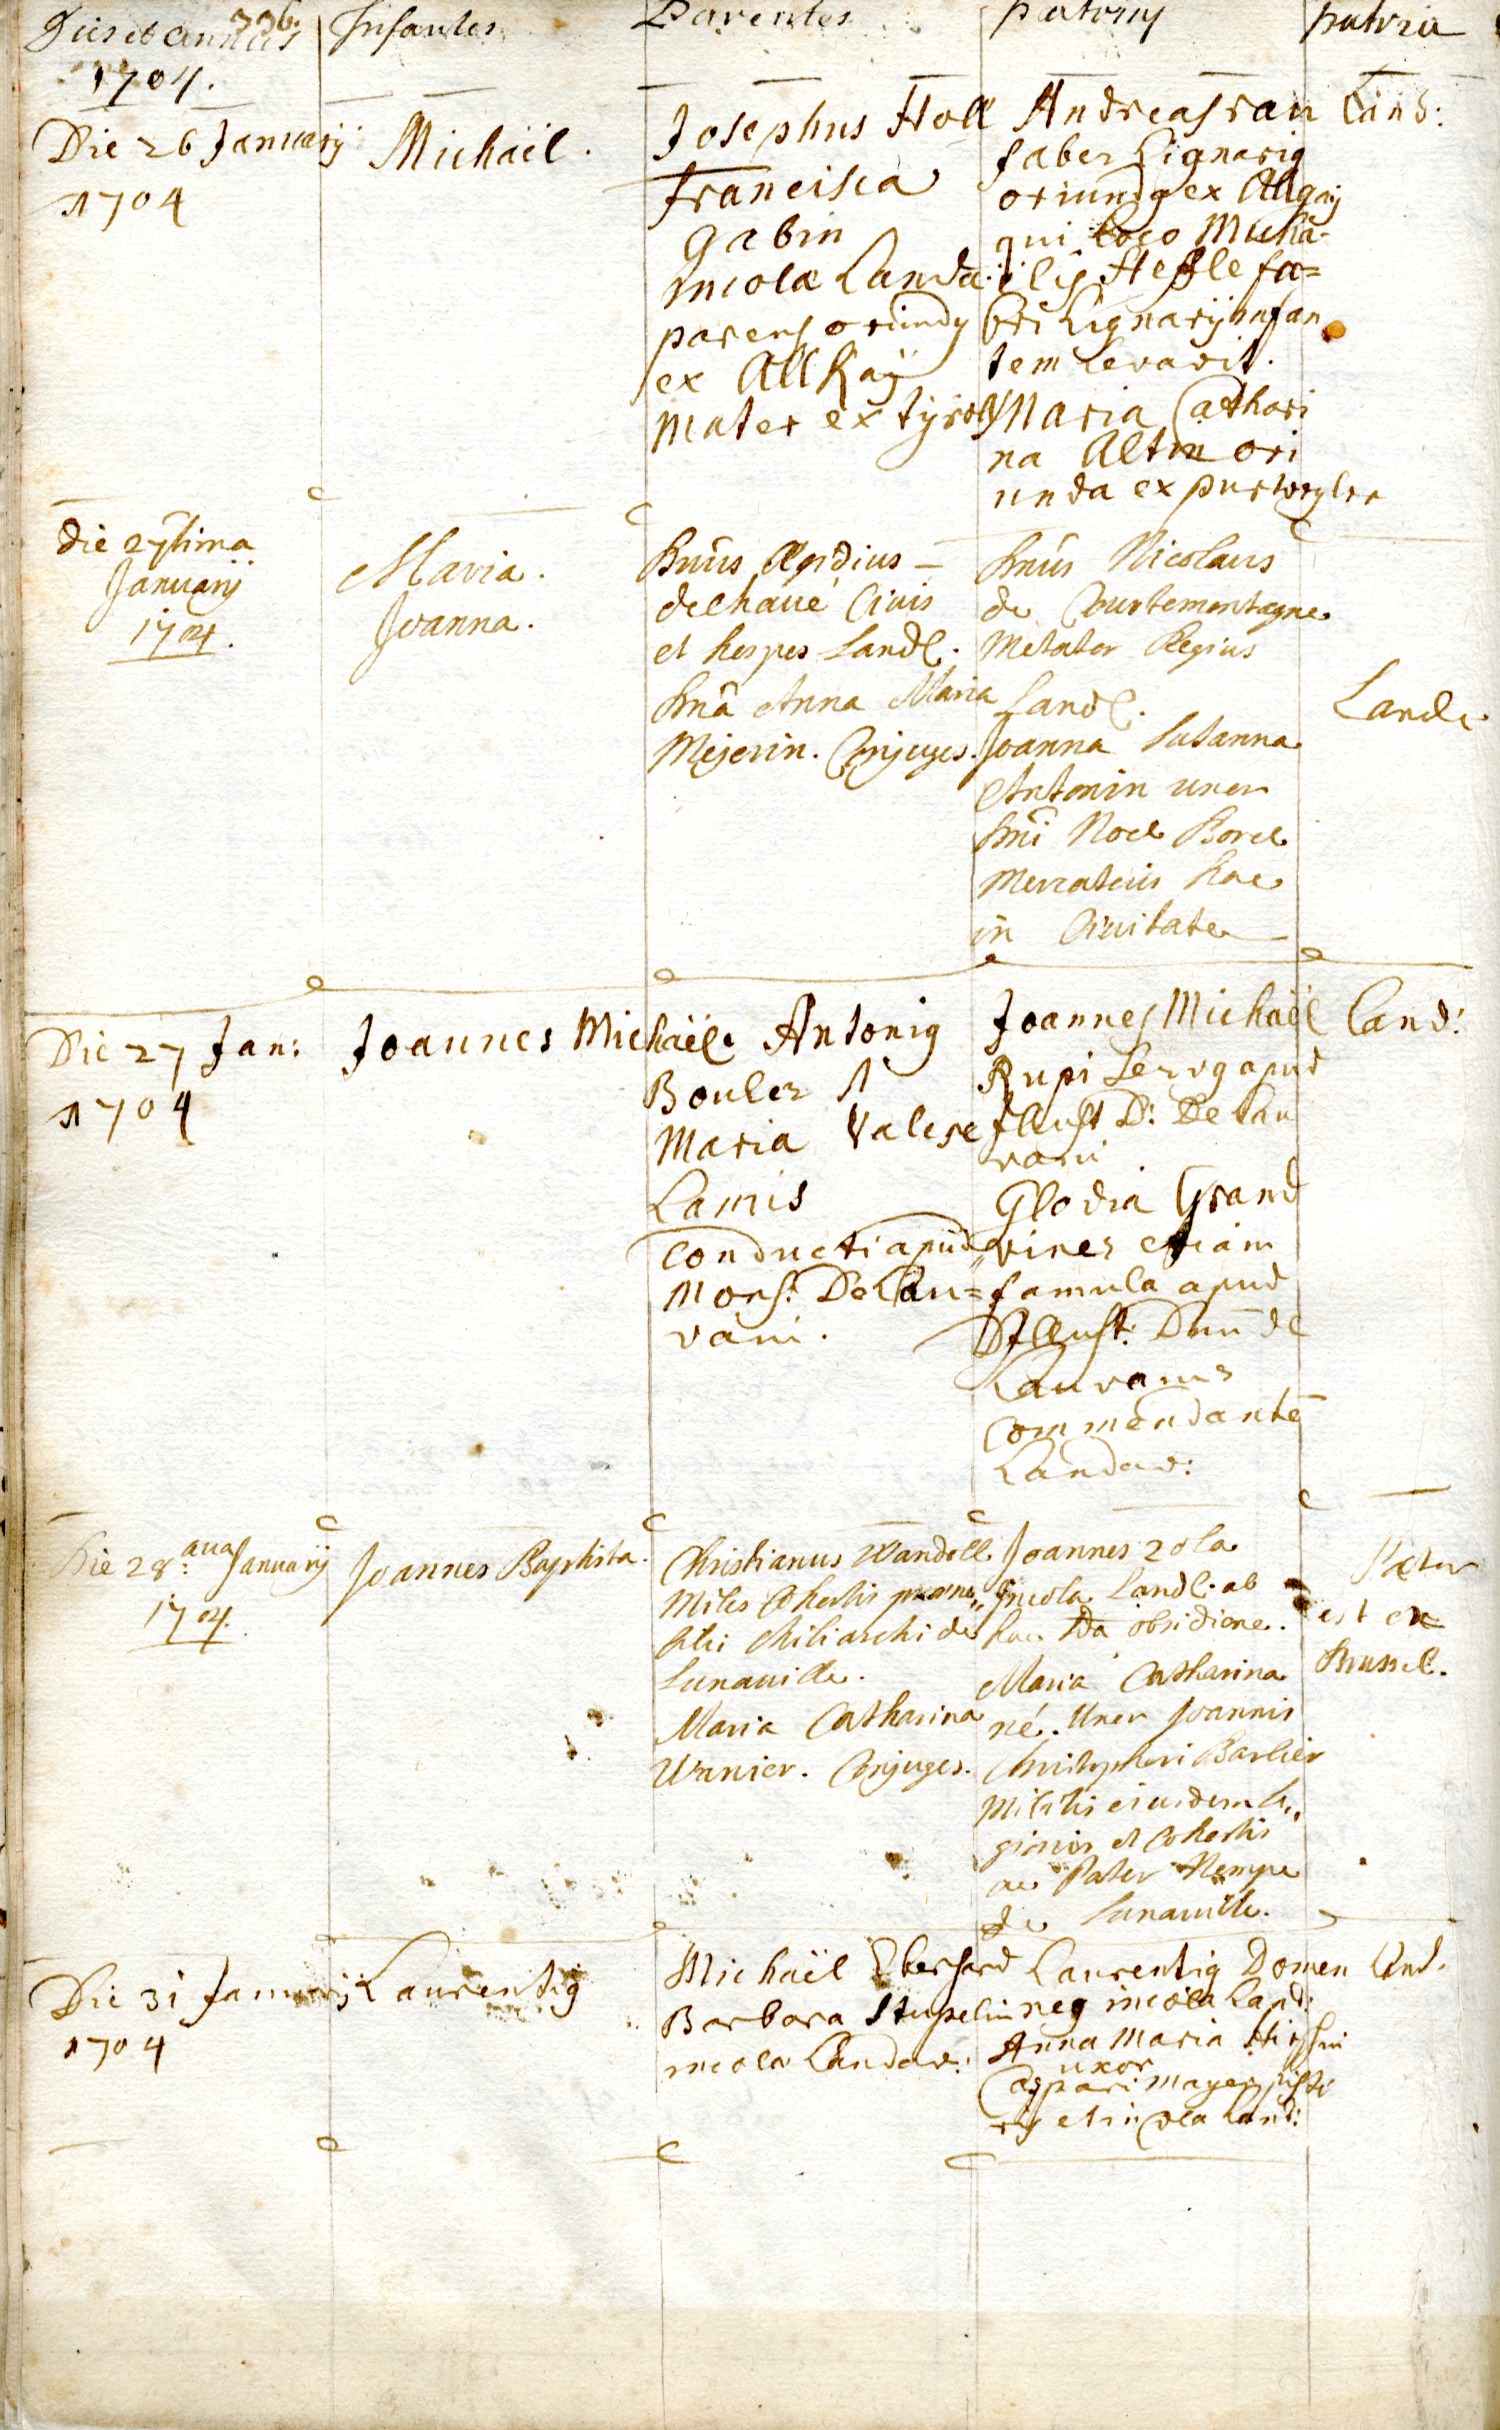 336.
Dies et annus
1704.
Infantes
Parentes
patrini
patria
Die 26 Januarij
1704
Michaël.
Josephus Holl
Francisca
Gabin
incolæ Landa:
parens oriundq
ex All Kaÿ
mater ex tyroly
Andreas rau
faber Lignariq
oriundq ex Allgaij
qui loco Micha-
ëlis Heßle fa=
bri Lignarij infan
tem levavit.
Maria Cathari
na Altin ori
unda ex
Land:
die 27tima
Januarij
1704.
Maria.
Joanna.
Dnus Ægidius –
dechaué Civis
et hospes Landl.
Dna Anna Maria
Mejerin. Conjuges.
Dnus Nicolaus
de Courtemontagne
Metator Regius
Landl.
Joanna Susanna
Antonin uxor
Dni Noel Borel
Mercatoris hac
in Civitate
Landl.
Die 27 Jan:
1704
Joannes Michaël.
Antoniq
Bouler
Maria Valese
Lamis
conducti apud
Mons: De Lau=
vani.
Joannes Michaël
Rupi servq apud
Illust D: De Lau
vani
Glodia Grand
vines etiam
famula apud
Illust: Dnū de
Lauvanis
Commendante
Landav:
Land:
Die 28.ava Januarij
1704.
Joannes Baptista.
Christianus Wandell
Miles Cohortis prænob,,
ilis chiliarchi de
Lunauille.
Maria Catharina
Wanier. Conjuges.
Joannes zola
Incola Landl. ab
hac 2da obsidione.
Maria Catharina
né. Uxor Joannis
Christophori Barlier
Militis eiusdem le,,
gionis et Cohortis
ac Pater Nempe
de Lunauille.
Pater
est ex
Brussel.
Die 31 Januarij
1704
Laurentiq
Michaël Eberhard
Barbara Stupelin
incolæ Landav:
Laurentiq Domen
neg incola Land:
Anna Maria Hirschin
uxor
Caspari mayer pisto
ris et incola Land:
Land.